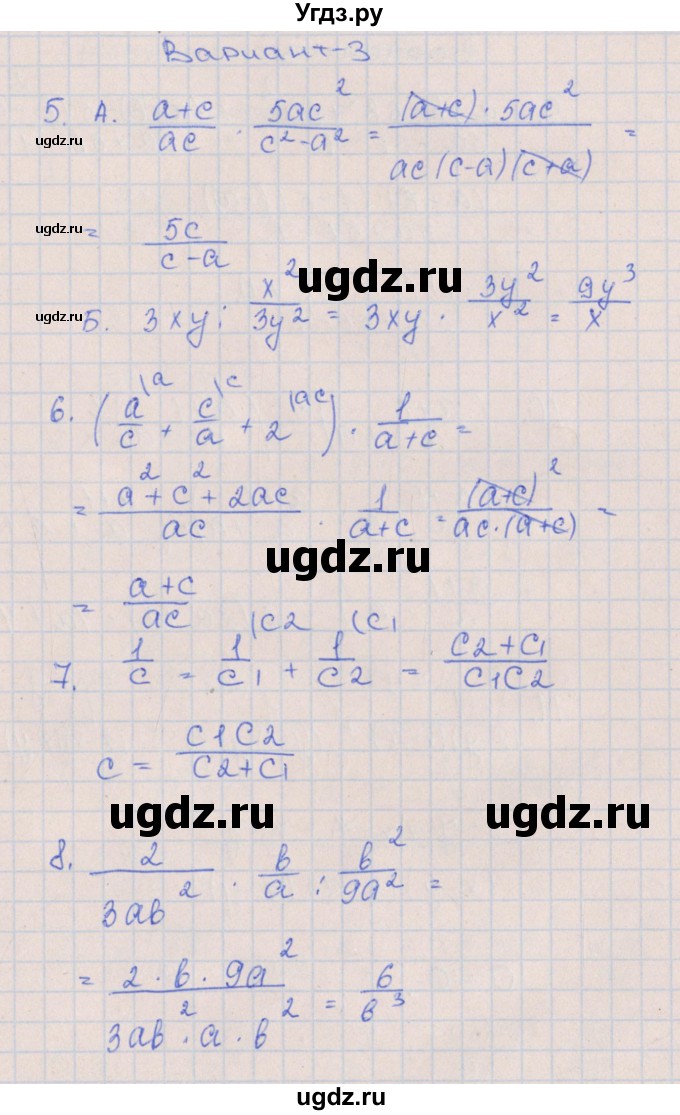 Угдз.ру
Вариант-3
5. А. (a+c)/(ac) · (5ac²)/(c²-a²) = ((a+c) · 5ac²)/(ac(c-a)(c+a)) =
ugdz.ru ugdz.ru
= 5c/(c-a)
ugdz.ru ugdz.ru
ugdz.ru
Б. 3xy : x²/(3y²) = 3xy · 3y²/x² = 9y³/x
ugdz.ru ugdz.ru
6. (a/c |a + c/a |c + 2 |ac) · 1/(a+c) =
= (a²+c²+2ac)/(ac) · 1/(a+c) = (a+c)²/(ac·(a+c)) =
ugdz.ru
= (a+c)/(ac)
7. 1/c = 1/c1 |c2 + 1/c2 |c1 = (c2+c1)/(c1c2)
c = (c1c2)/(c2+c1)
ugdz.ru ugdz.ru
8. 2/(3ab²) · b/a : b²/(9a²) =
= (2·b·9a²)/(3ab²·a·b²) = 6/b³
ugdz.ru